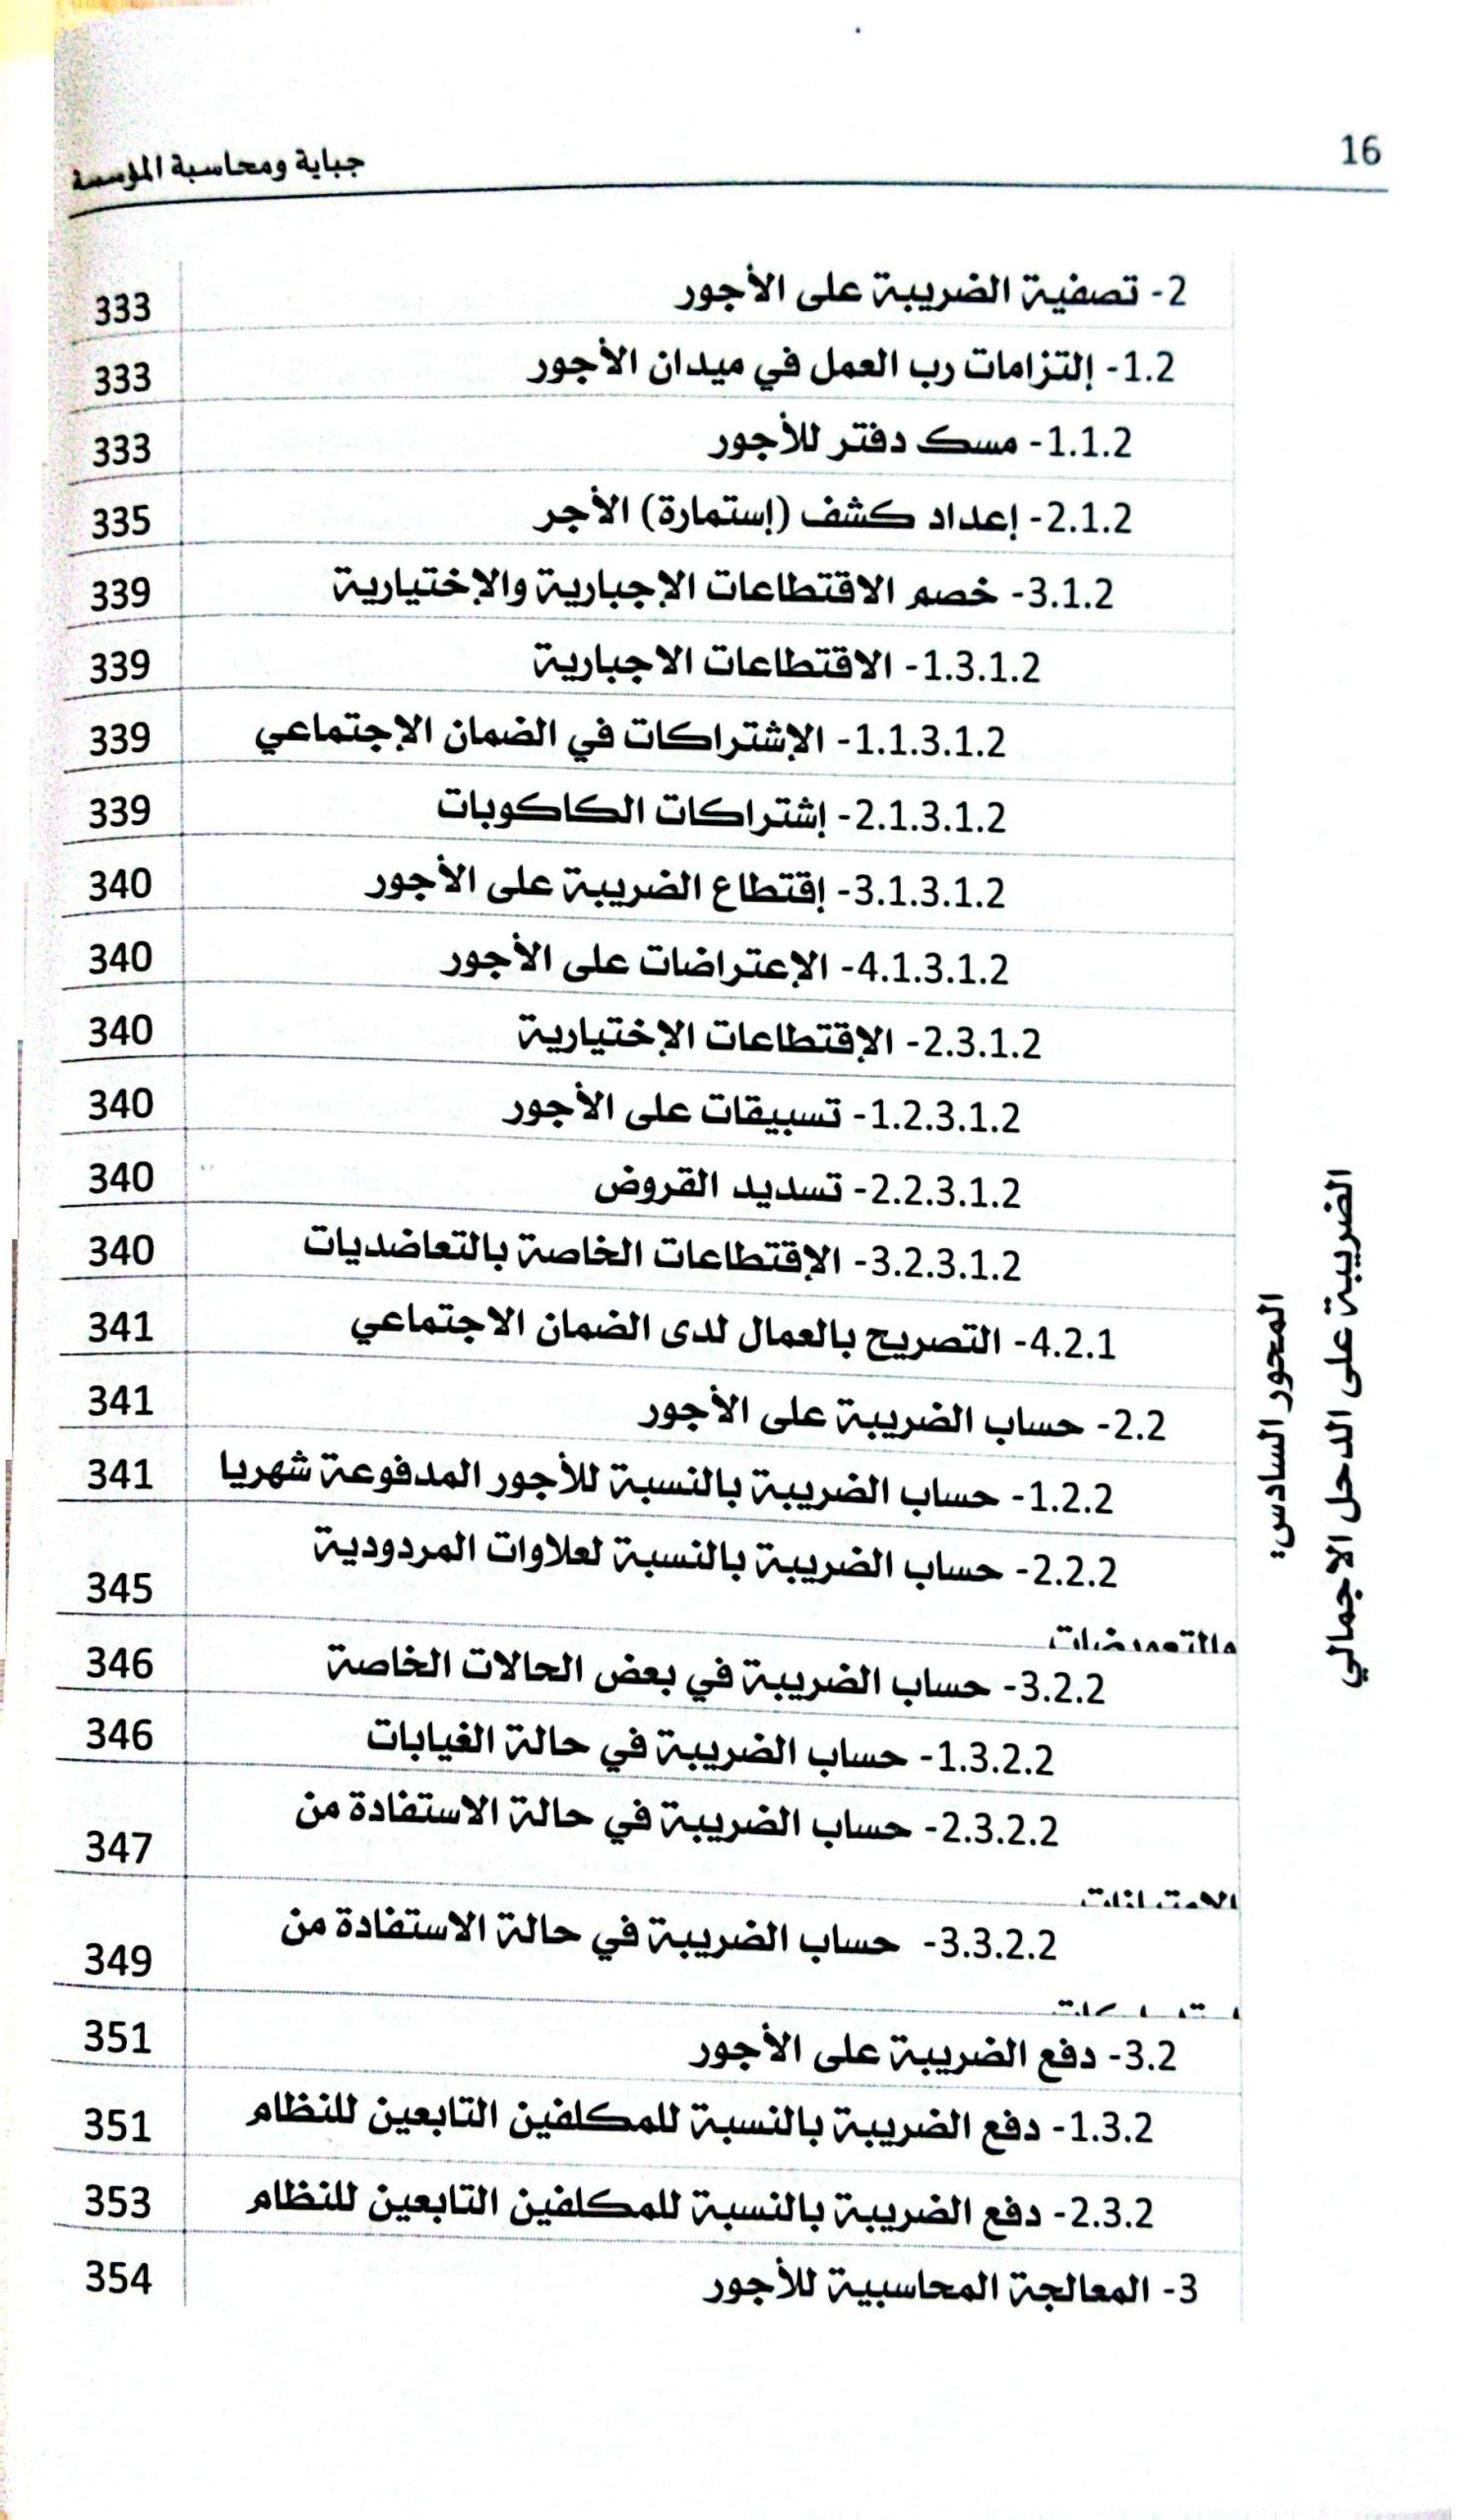 16
جباية ومحاسبة المؤسسة
2- تصفية الضريبة على الأجور 333
1.2- إلتزامات رب العمل في ميدان الأجور 333
1.1.2- مسك دفتر للأجور 333
2.1.2- إعداد كشف (إستمارة) الأجر 335
3.1.2- خصم الاقتطاعات الإجبارية والإختيارية 339
1.3.1.2- الاقتطاعات الاجبارية 339
1.1.3.1.2- الإشتراكات في الضمان الإجتماعي 339
2.1.3.1.2- إشتراكات الكاكوبات 339
3.1.3.1.2- إقتطاع الضريبة على الأجور 340
4.1.3.1.2- الإعتراضات على الأجور 340
2.3.1.2- الإقتطاعات الإختيارية 340
1.2.3.1.2- تسبيقات على الأجور 340
2.2.3.1.2- تسديد القروض 340
3.2.3.1.2- الإقتطاعات الخاصة بالتعاضديات 340
4.2.1- التصريح بالعمال لدى الضمان الاجتماعي 341
2.2- حساب الضريبة على الأجور 341
1.2.2- حساب الضريبة بالنسبة للأجور المدفوعة شهريا 341
2.2.2- حساب الضريبة بالنسبة لعلاوات المردودية 345
والتعويضات
3.2.2- حساب الضريبة في بعض الحالات الخاصة 346
1.3.2.2- حساب الضريبة في حالة الغيابات 346
2.3.2.2- حساب الضريبة في حالة الاستفادة من 347
3.3.2.2- حساب الضريبة في حالة الاستفادة من 349
3.2- دفع الضريبة على الأجور 351
1.3.2- دفع الضريبة بالنسبة للمكلفين التابعين للنظام 351
2.3.2- دفع الضريبة بالنسبة للمكلفين التابعين للنظام 353
3- المعالجة المحاسبية للأجور 354
المحور السادس:
الضريبة على الدخل الاجمالي